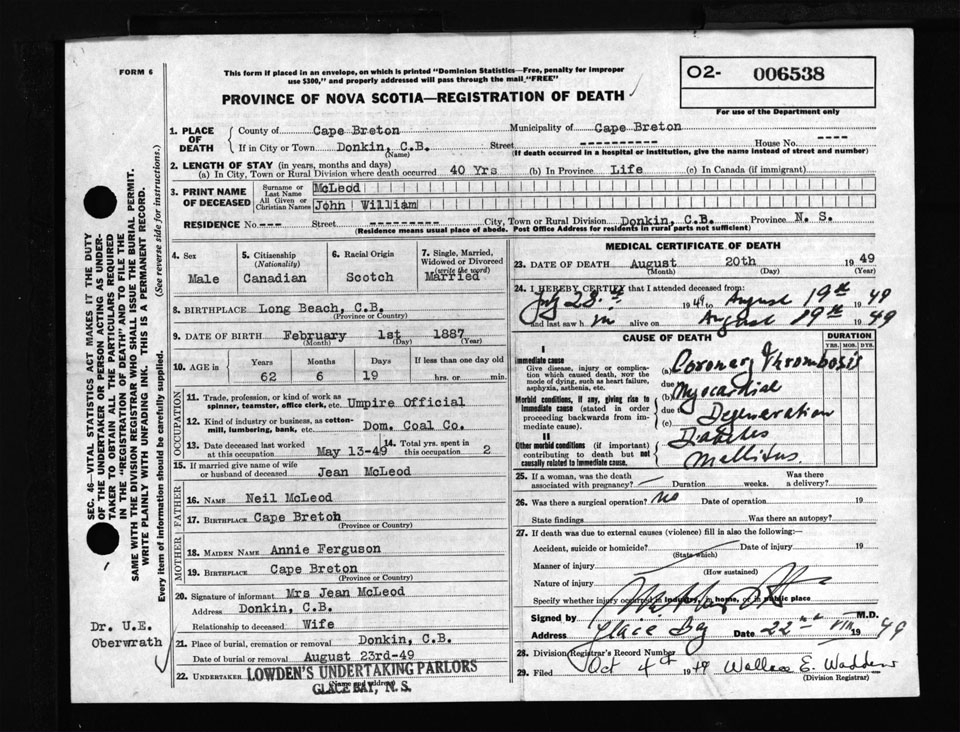 FORM 6
This form if placed in an envelope, on which is printed "Dominion Statistics—Free, penalty for improper
use $300," and properly addressed will pass through the mail "FREE"
O2- 006538
PROVINCE OF NOVA SCOTIA—REGISTRATION OF DEATH
For use of the Department only
1. PLACE OF DEATH
County of Cape Breton Municipality of Cape Breton
If in City or Town Donkin, C.B. Street ---------- House No. ----
(Name) (If death occurred in a hospital or institution, give the name instead of street and number)
2. LENGTH OF STAY (in years, months and days)
(a) In City, Town or Rural Division where death occurred 40 Yrs (b) In Province Life (c) In Canada (if immigrant)
3. PRINT NAME OF DECEASED
Surname or Last Name McLeod
All Given or Christian Names John William
RESIDENCE No. --- Street --------- City, Town or Rural Division Donkin, C.B. Province N. S.
(Residence means usual place of abode. Post Office Address for residents in rural parts not sufficient)
4. Sex
Male
5. Citizenship
(Nationality)
Canadian
6. Racial Origin
Scotch
7. Single, Married,
Widowed or Divorced
(write the word)
Married
8. BIRTHPLACE Long Beach, C.B.
(Province or Country)
9. DATE OF BIRTH February 1st 1887
(Month) (Day) (Year)
10. AGE in
Years Months Days If less than one day old
62 6 19 hrs. or min.
OCCUPATION
11. Trade, profession, or kind of work as
spinner, teamster, office clerk, etc. Umpire Official
12. Kind of industry or business, as cotton-
mill, lumbering, bank, etc. Dom. Coal Co.
13. Date deceased last worked
at this occupation May 13-49
14. Total yrs. spent in
this occupation 2
15. If married give name of wife
or husband of deceased Jean McLeod
FATHER
16. NAME Neil McLeod
17. BIRTHPLACE Cape Breton
(Province or Country)
MOTHER
18. MAIDEN NAME Annie Ferguson
19. BIRTHPLACE Cape Breton
(Province or Country)
20. Signature of informant Mrs Jean McLeod
Address Donkin, C.B.
Relationship to deceased Wife
21. Place of burial, cremation or removal Donkin, C.B.
Date of burial or removal August 23rd-49
22. UNDERTAKER LOWDEN'S UNDERTAKING PARLORS
(Name and address)
GLACE BAY, N. S.
MEDICAL CERTIFICATE OF DEATH
23. DATE OF DEATH August 20th 1949
(Month) (Day) (Year)
24. I HEREBY CERTIFY that I attended deceased from:
July 28 1949 to August 19th 49
and last saw h im alive on August 19th 49
CAUSE OF DEATH DURATION
YRS. MOS. DYS.
I
Immediate cause
Give disease, injury or complica-
tion which caused death, not the
mode of dying, such as heart failure,
asphyxia, asthenia, etc.
Morbid conditions, if any, giving rise to
immediate cause (stated in order
proceeding backwards from im-
mediate cause).
II
Other morbid conditions (if important)
contributing to death but not
causally related to immediate cause.
(a) Coronary Thrombosis
due to
(b) Myocardial
due to Degeneration
(c)
Diabetes
Mellitus.
25. If a woman, was the death
associated with pregnancy? — Duration weeks. Was there
a delivery?
26. Was there a surgical operation? No Date of operation 19
State findings Was there an autopsy?
27. If death was due to external causes (violence) fill in also the following:—
Accident, suicide or homicide? Date of injury 19
(State which)
Manner of injury
(How sustained)
Nature of injury
Specify whether injury occurred in industry, in home, or in public place
Signed by M.D.
Address Glace Bay Date 22nd VIII 1949
28. Division Registrar's Record Number
29. Filed Oct 4th 1949 Wallace E. Wadden
(Division Registrar)
SEC. 46—VITAL STATISTICS ACT MAKES IT THE DUTY
OF THE UNDERTAKER OR PERSON ACTING AS UNDER-
TAKER TO OBTAIN ALL THE PARTICULARS REQUIRED
IN THE "REGISTRATION OF DEATH" AND TO FILE THE
SAME WITH THE DIVISION REGISTRAR WHO SHALL ISSUE THE BURIAL PERMIT.
WRITE PLAINLY WITH UNFADING INK. THIS IS A PERMANENT RECORD.
Every item of information should be carefully supplied. (See reverse side for instructions.)
Dr. U.E.
Oberwrath